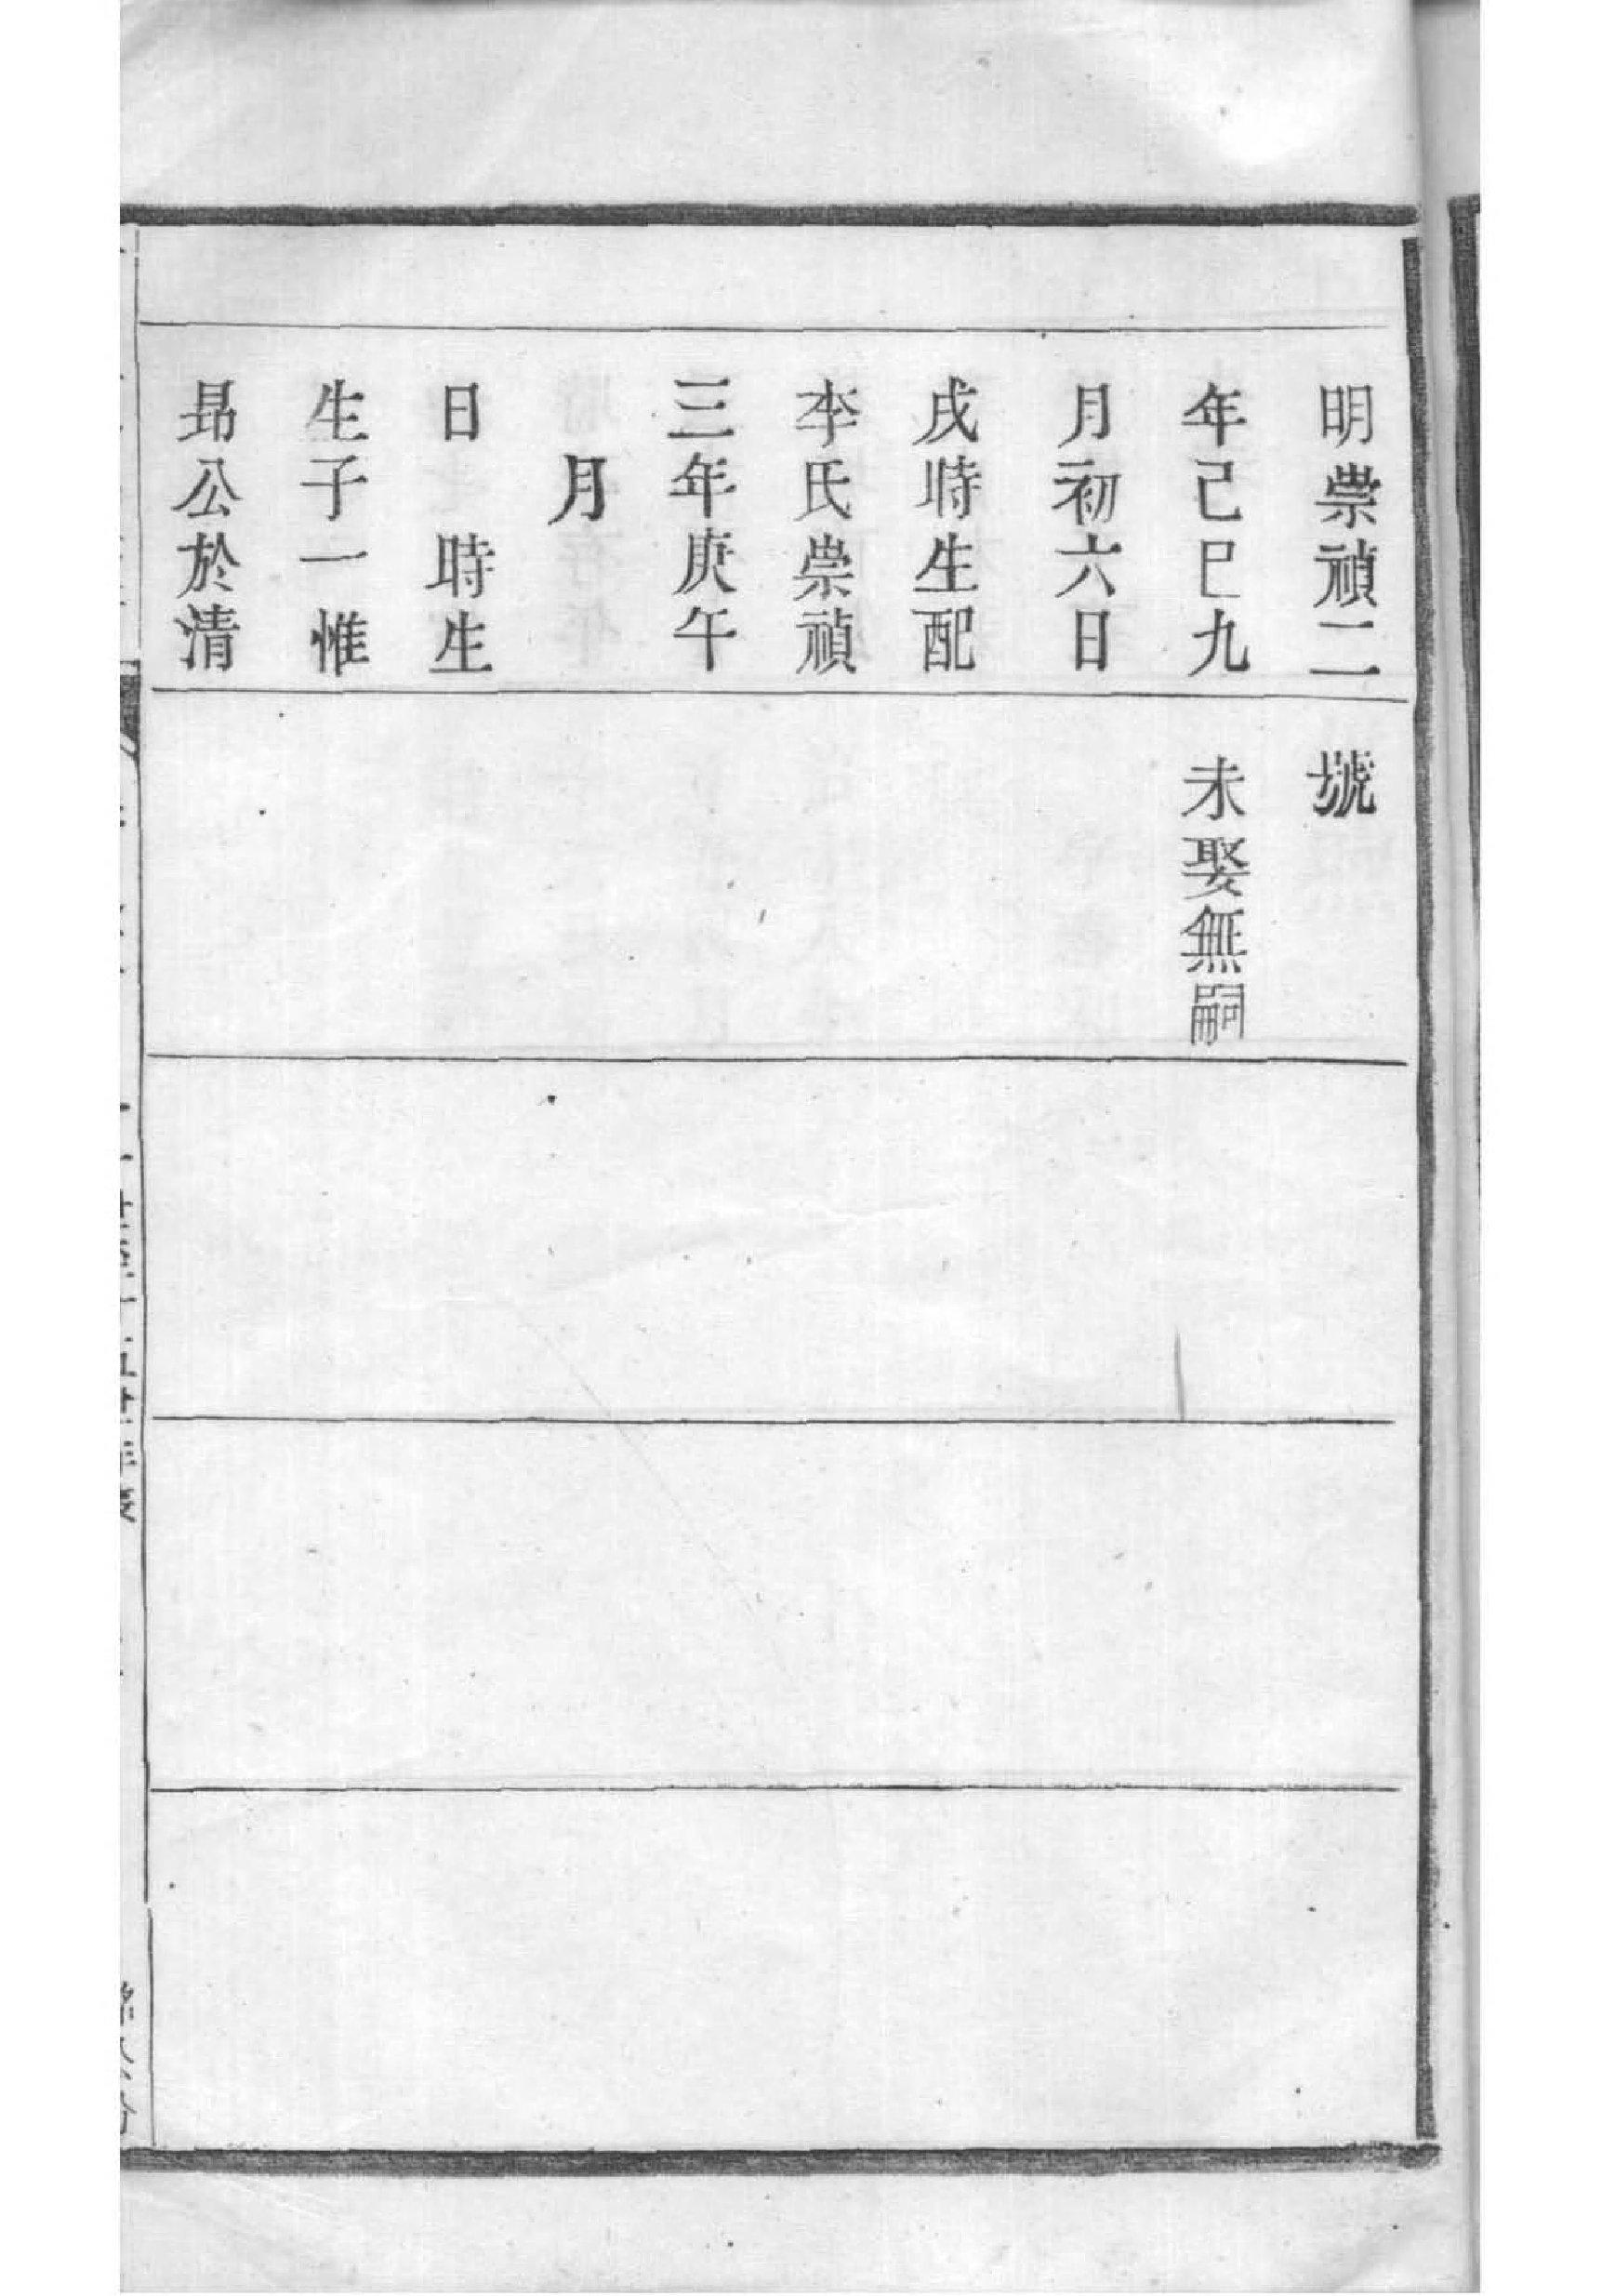 明崇禎二
年己巳九
月初六日
戌時生配
李氏崇禎
三年庚午
月
日　時生
生子一惟
昻公於清
號
未娶無嗣